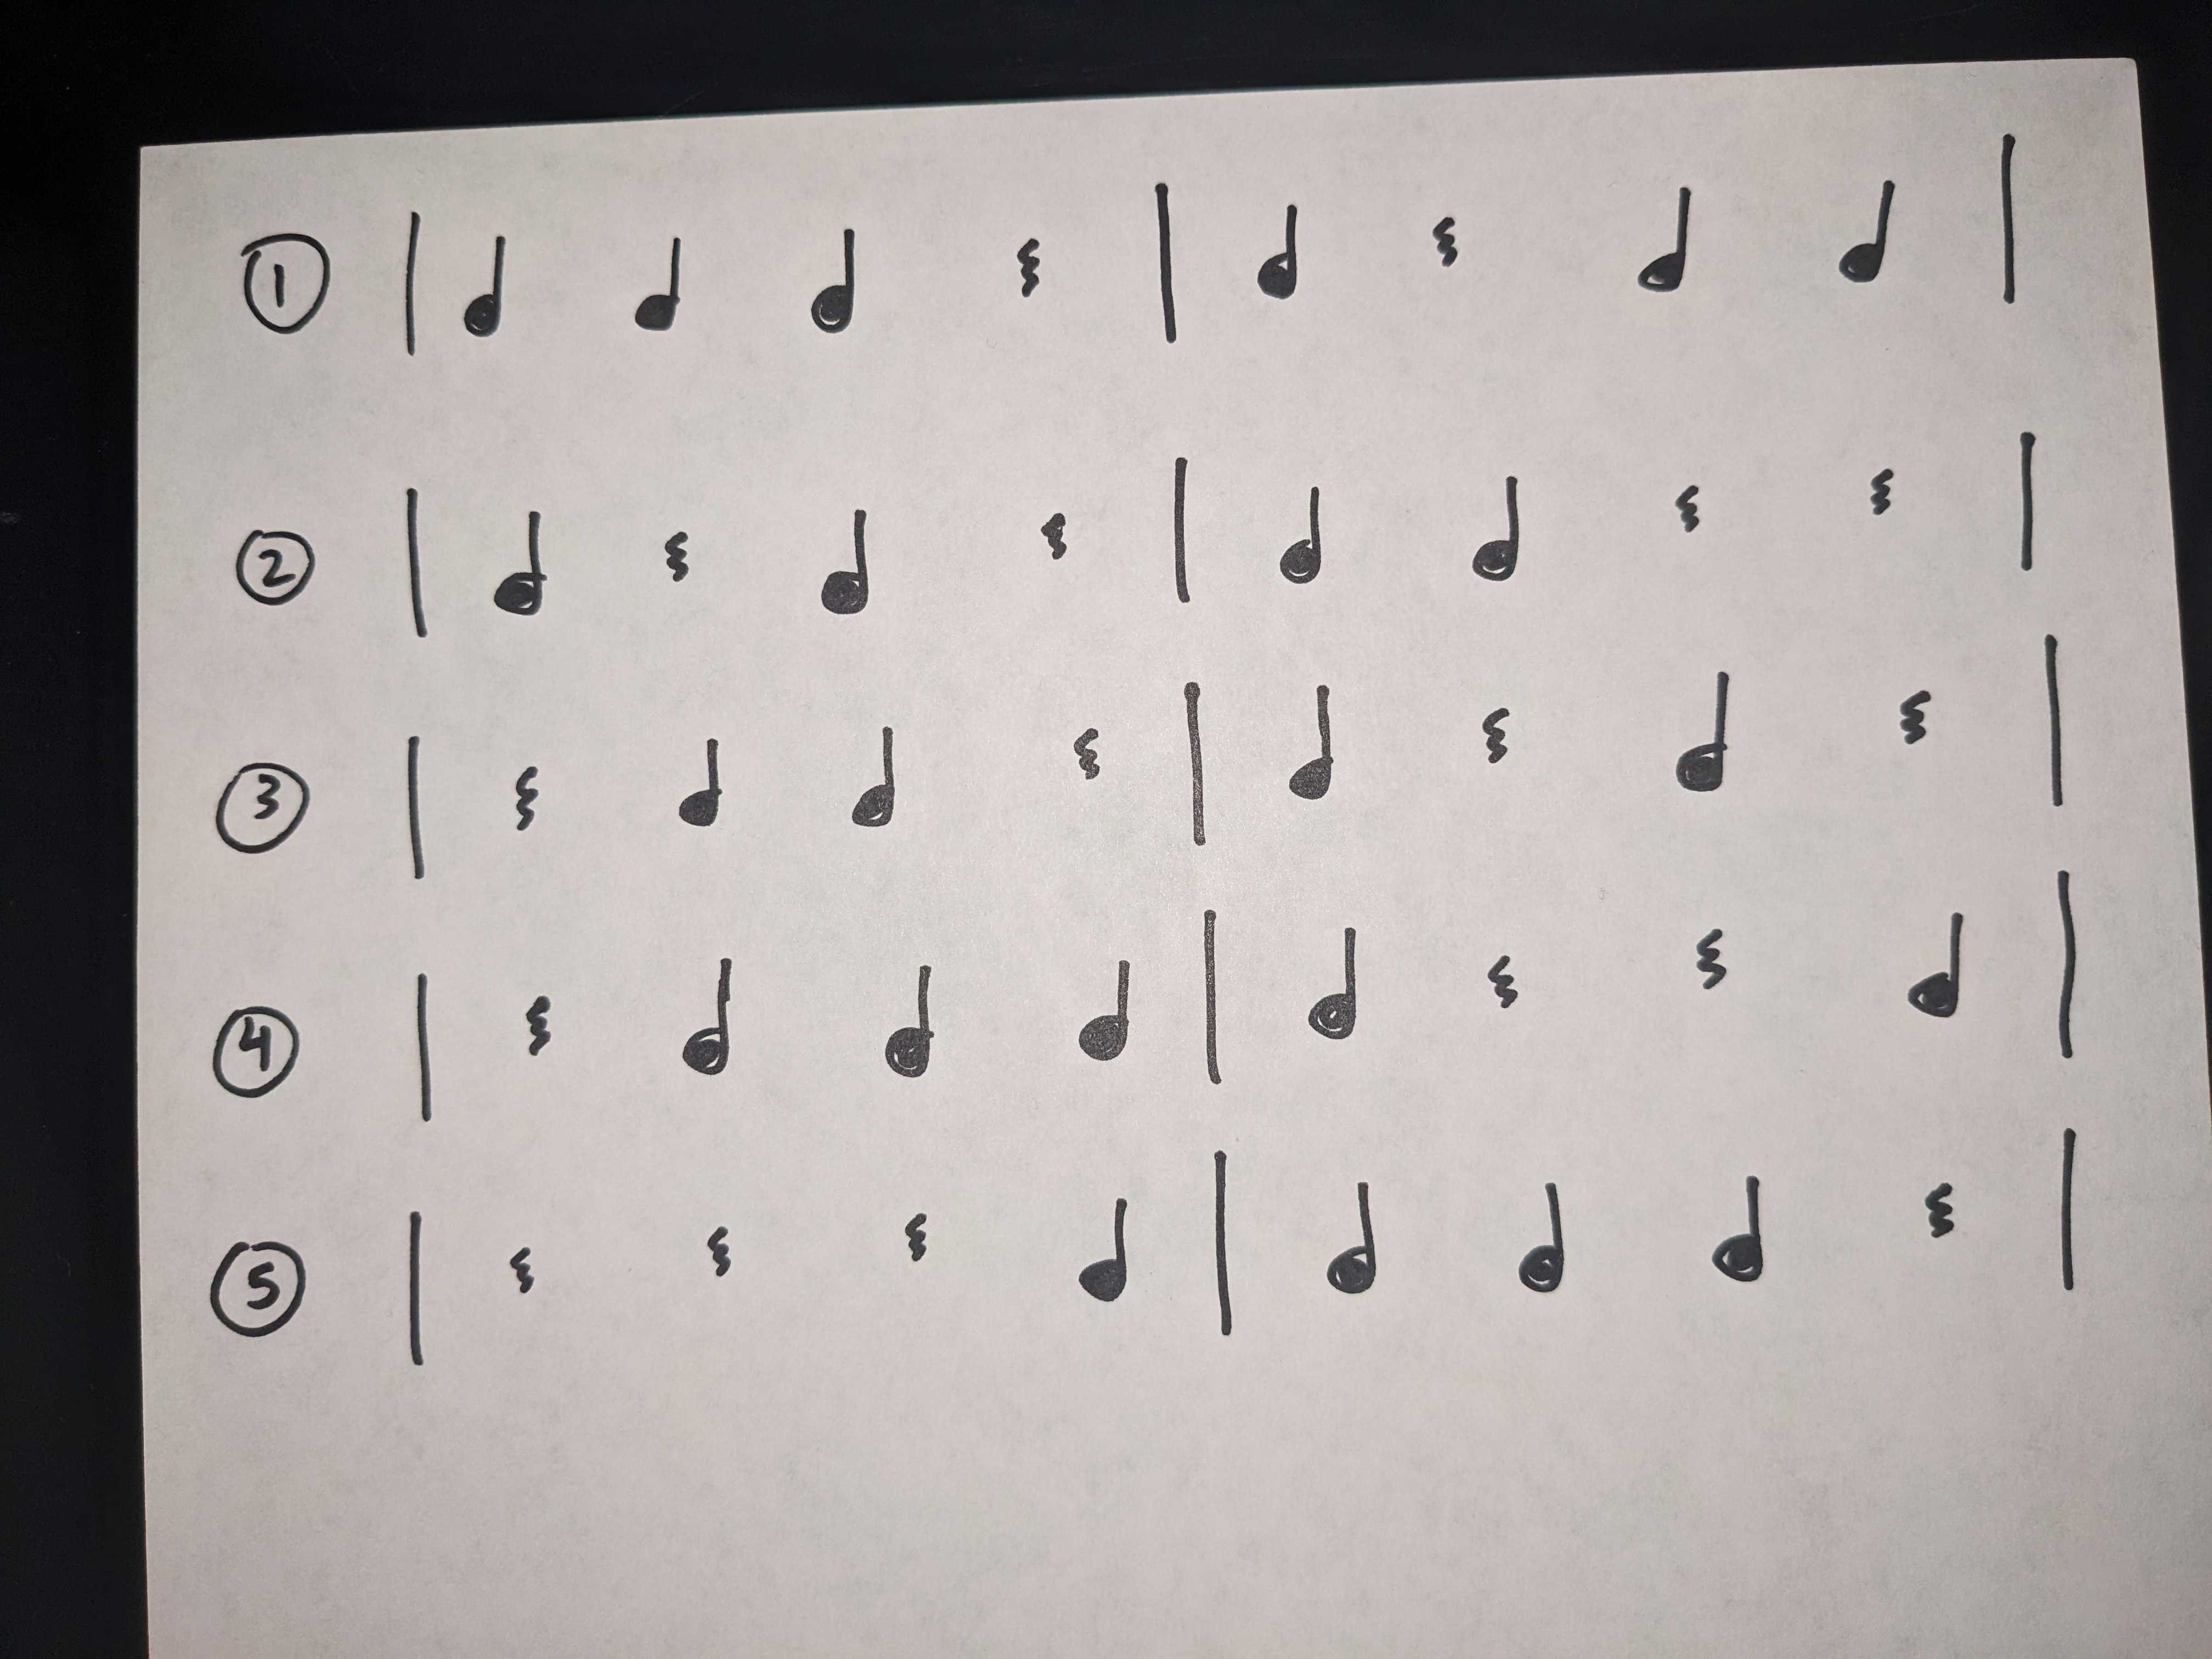 ① | ♩ ♩ ♩ 𝄽 | ♩ 𝄽 ♩ ♩ |
② | ♩ 𝄽 ♩ 𝄽 | ♩ ♩ 𝄽 𝄽 |
③ | 𝄽 ♩ ♩ 𝄽 | ♩ 𝄽 ♩ 𝄽 |
④ | 𝄽 ♩ ♩ ♩ | ♩ 𝄽 𝄽 ♩ |
⑤ | 𝄽 𝄽 𝄽 ♩ | ♩ ♩ ♩ 𝄽 |